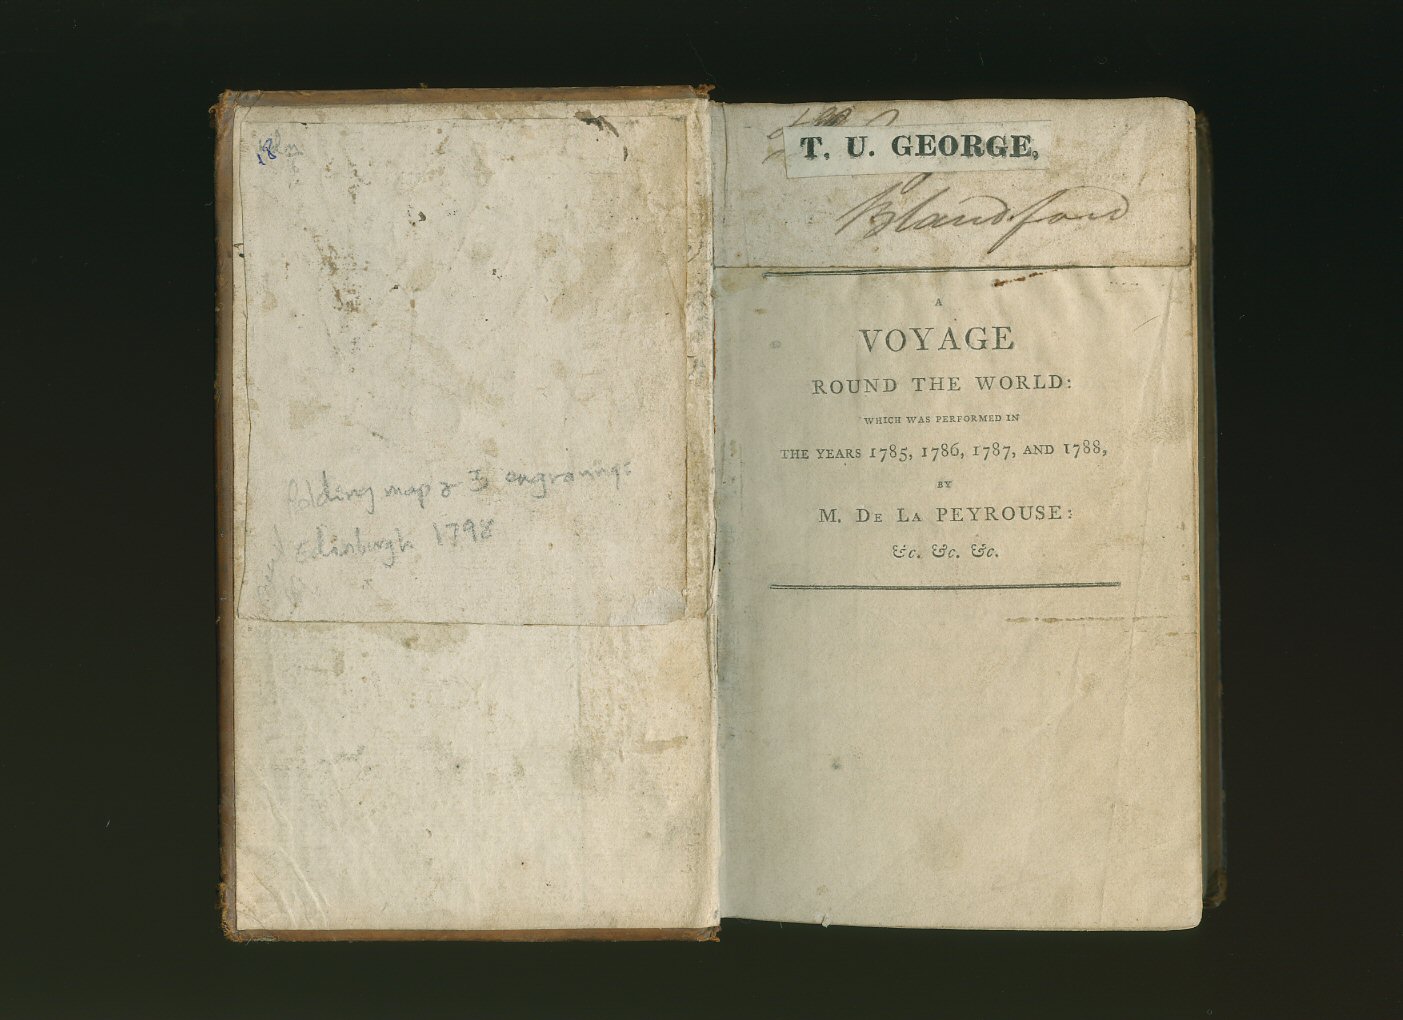 18
folding map & 3 engravings
Edinburgh 1798
T. U. GEORGE,
Blandford
A
VOYAGE
ROUND THE WORLD:
WHICH WAS PERFORMED IN
THE YEARS 1785, 1786, 1787, AND 1788,
BY
M. DE LA PEYROUSE:
&c. &c. &c.